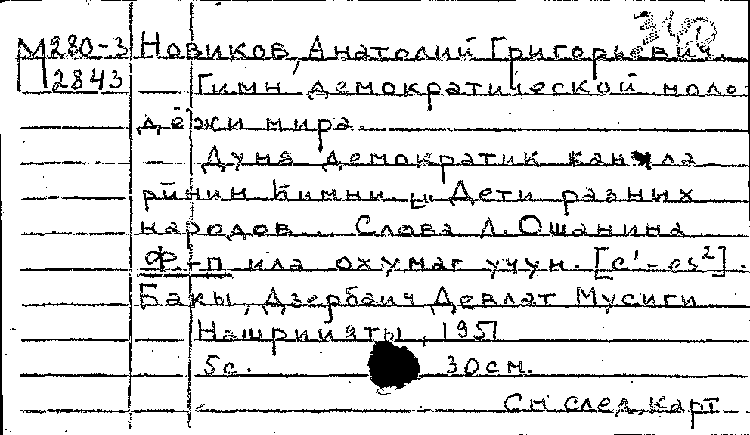 340
М280-3 Новиков, Анатолий Григорьевич.
П2843 Гимн демократической моло
дёжи мира.
Дунја демократик канчла
рйнин ҺИмни. „Дети разных
народов... Слова Л. Ошанина
ф.-п ила охумаг учун. [c¹-es²].
Бакы, Азербаич Девлат Мусиги
Нашрийяты, 1951
5с. 30см.
См след. карт